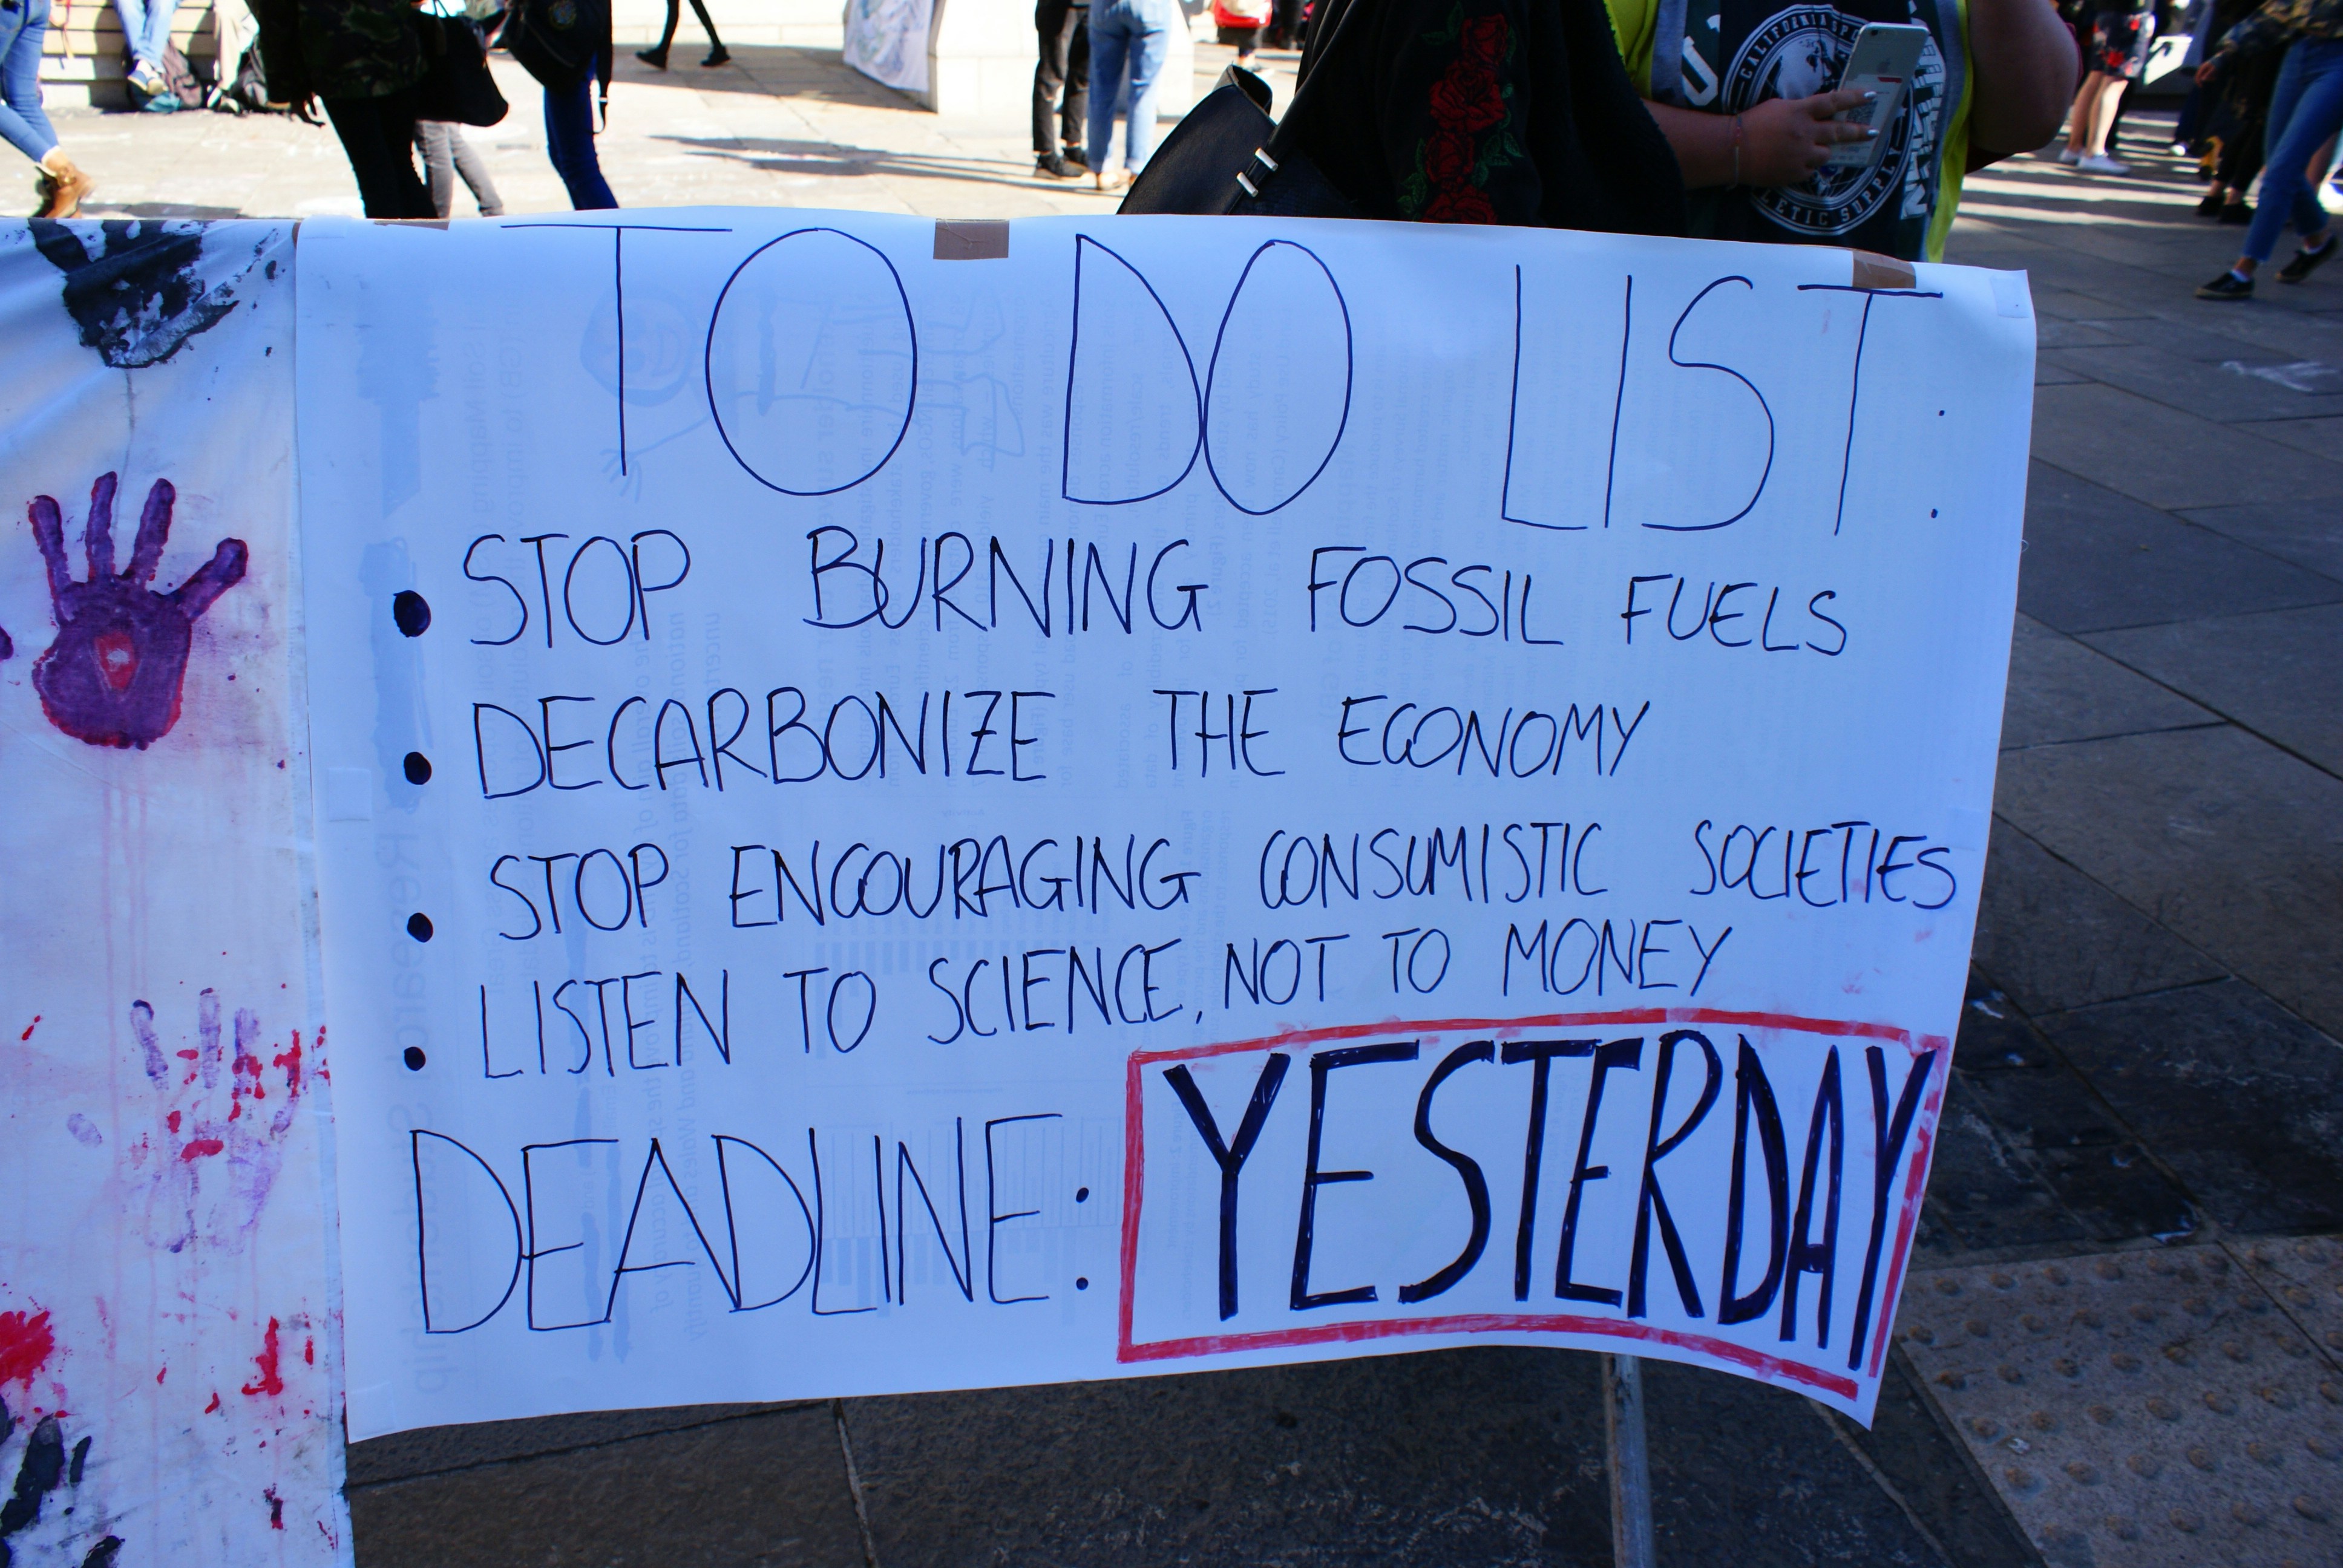 CALIFORNIA SPO
LETIC SUPPLY
TO DO LIST:
• STOP BURNING FOSSIL FUELS
• DECARBONIZE THE ECONOMY
• STOP ENCOURAGING CONSUMISTIC SOCIETIES
• LISTEN TO SCIENCE, NOT TO MONEY
DEADLINE: YESTERDAY